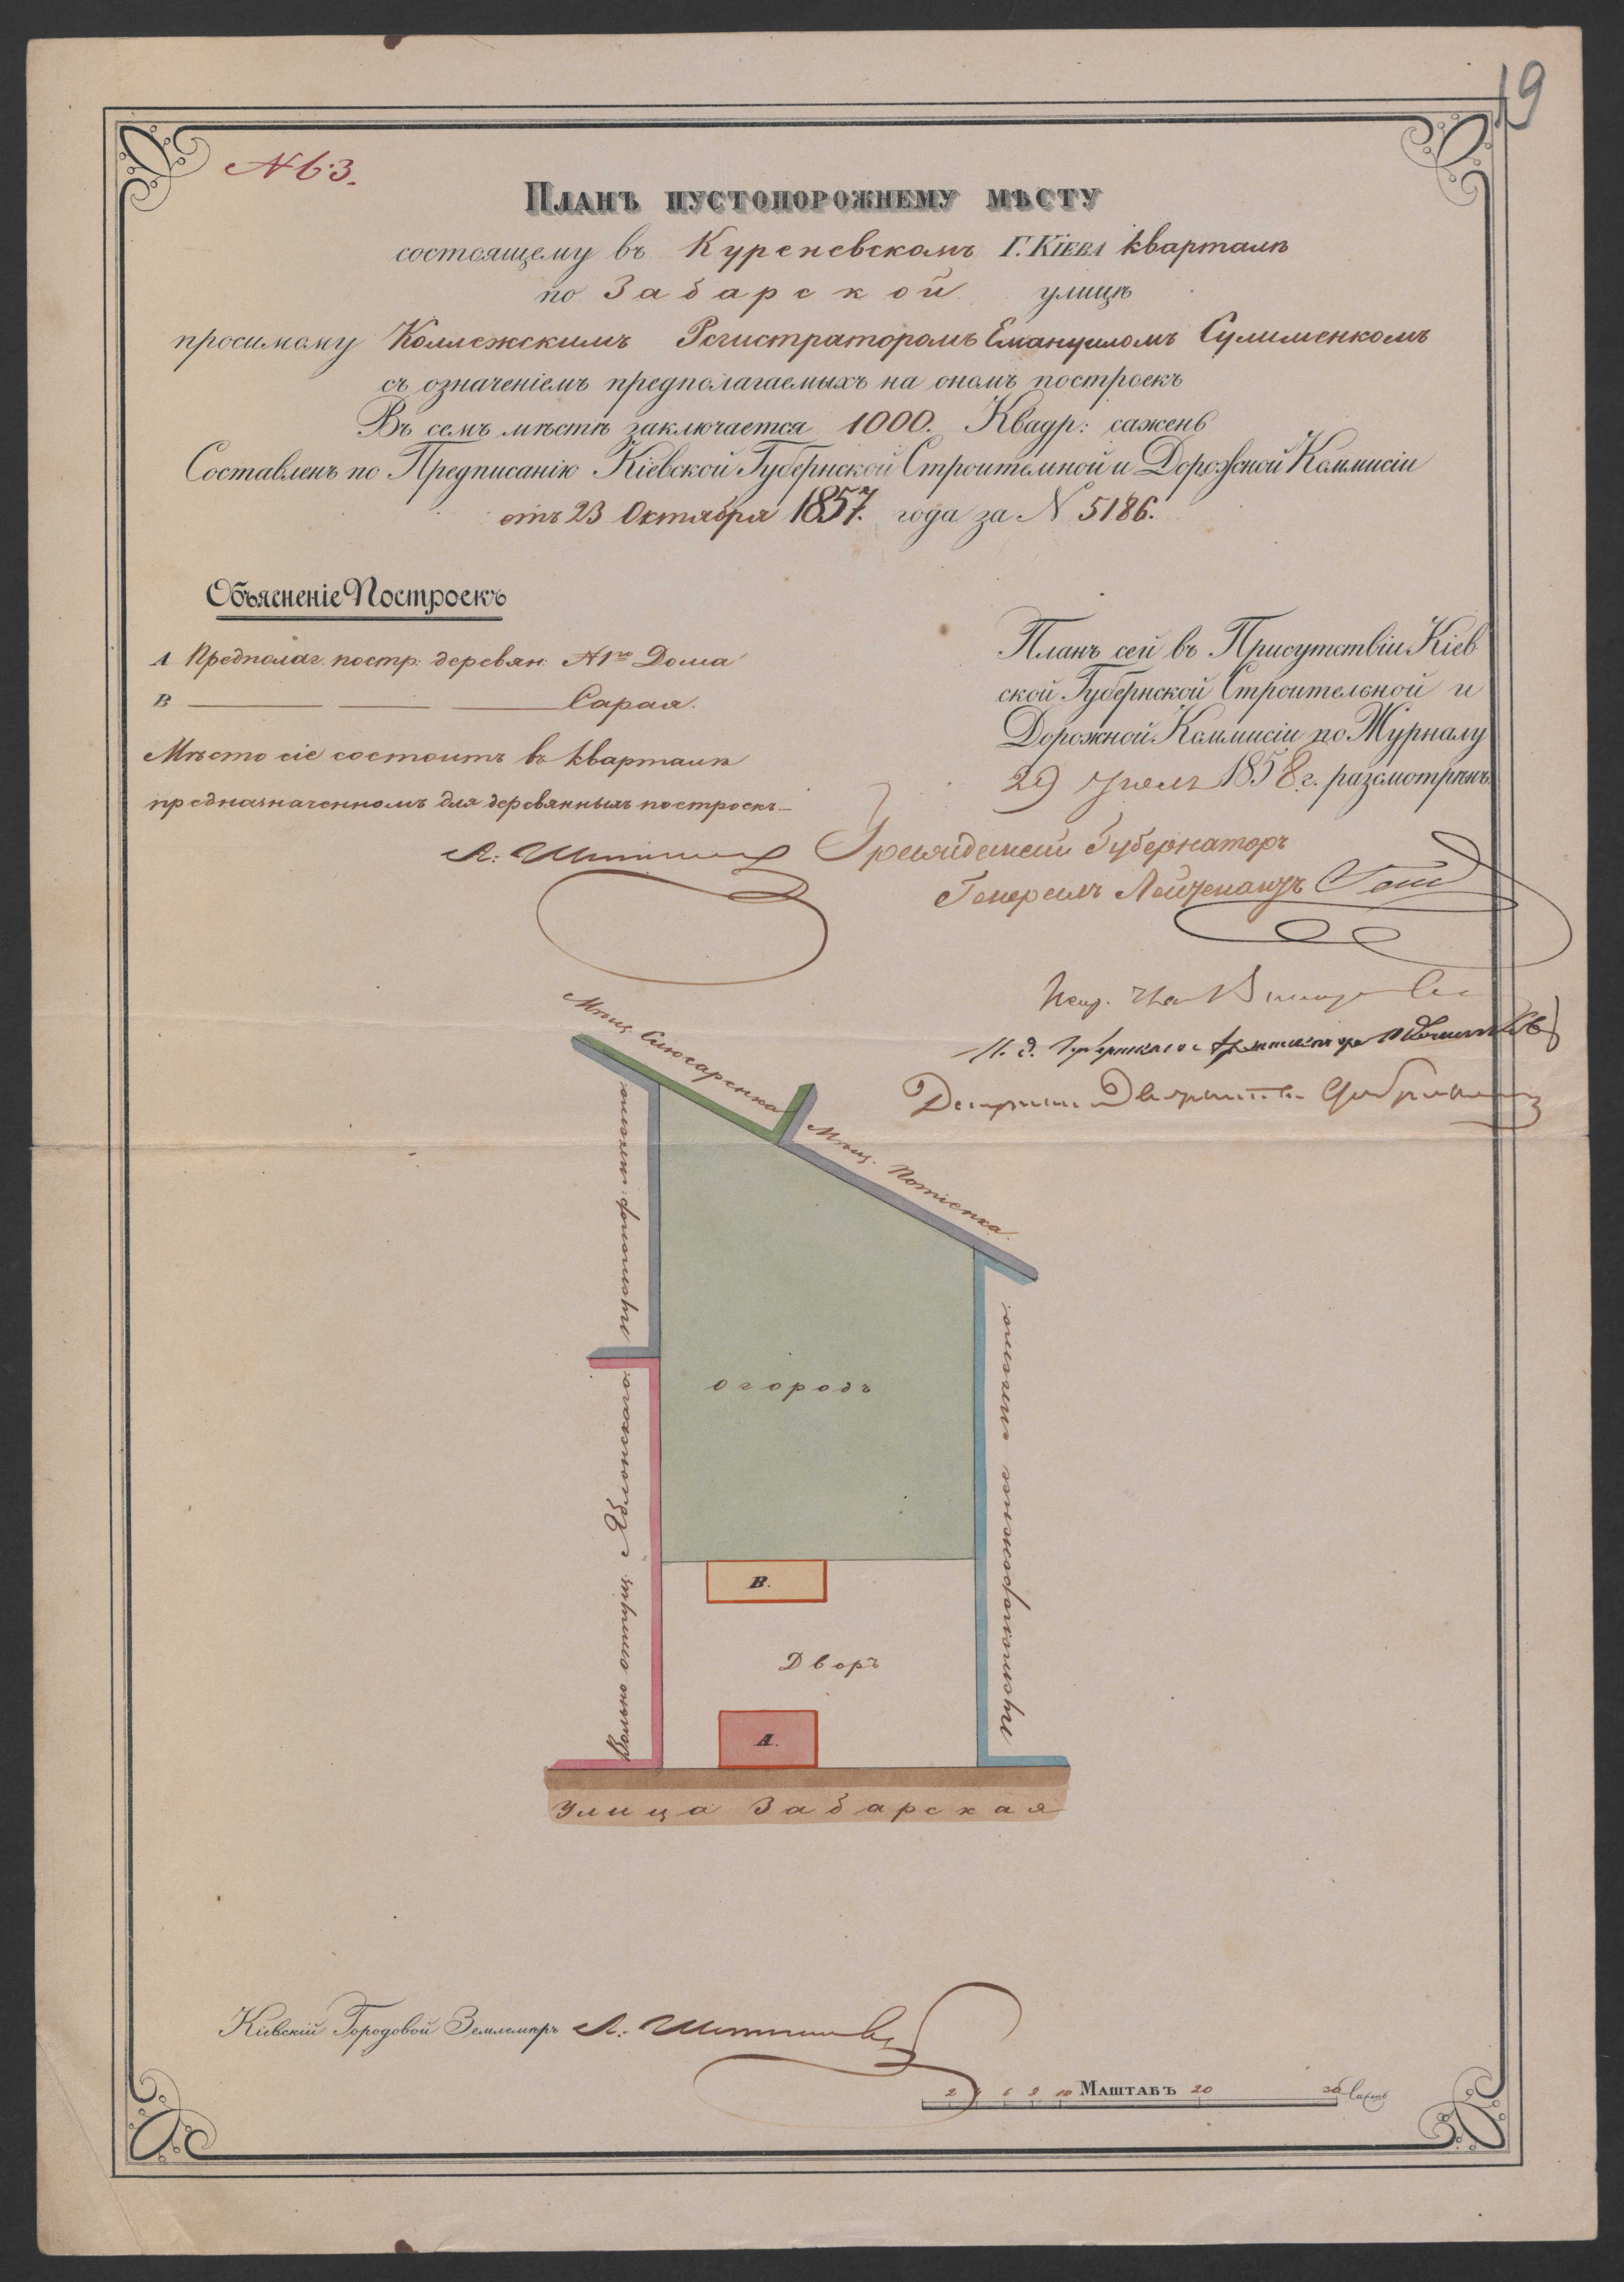 19
№ 63.
Планъ пустопорожнему мѣсту
состоящему въ Куреневскомъ Г. Кіева кварталѣ
по Забарской улицѣ
просимому Коллежскимъ Регистраторомъ Емануиломъ Сулименкомъ
съ означеніемъ предполагаемыхъ на ономъ построекъ
Въ семъ мѣстѣ заключается 1000. Квадр: сажень
Составленъ по Предписанію Кіевской Губернской Строительной и Дорожной Коммисіи
отъ 23 Октября 1857. года за № 5186.
Объясненіе Построекъ
А Предполаг. постр: деревян: №1го Дома
В Сарая.
Мѣсто сіе состоитъ въ кварталѣ
предназначенномъ для деревянныхъ построекъ
А:
Планъ сей въ Присутствіи Кіев
ской Губернской Строительной и
Дорожной Коммисіи по Журналу
29 1858 г. разсмотрѣнъ
Гражданскій Губернаторъ
Генералъ Лейтенантъ
И. д. Губернскаго Архитектора
Депутатъ Дворянства
Мѣщ. Слюсаренка
Мѣщ. Потіенка.
пустопорож: мѣстою
Вольно отпущ. Яблонскаго.
пустопорожнее мѣстою.
огородъ
В.
Дворъ
А.
Улица Забарская
Кіевскій Городовой Землемѣръ А:
2 4 6 8 10 Маштабъ 20 30 Саж.